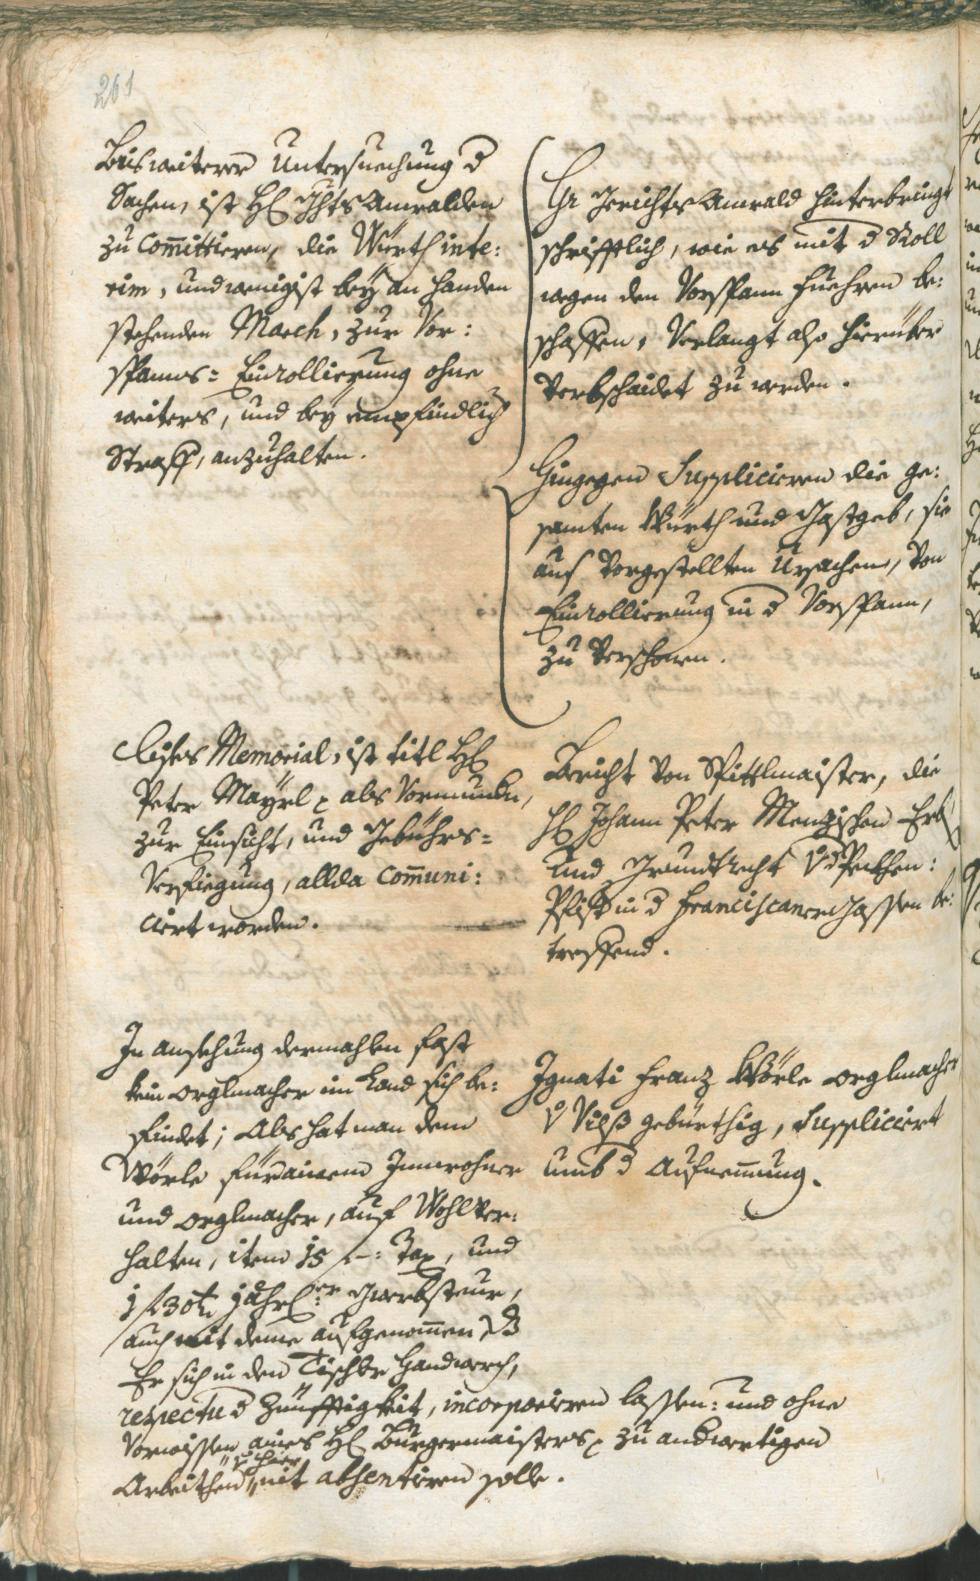 261
Bis weiterer Untersuechung d
Sachen, ist H. Ghts Anwalden
zu committieren, die Würth inte:
rim, und wenigist bey an handen
stehenden March, zur Vor:
spanns= Einrollierung ohne
weiters, und bey empfindlich
Straff, anzuhalten.
Hr Gerichts Anwald hinterbringt
schrifftlich, wie es mit d Roll
wegen den Vorspann fuehren be:
schaffen, Verlangt also hierüber
Verbschaidet zu werden.
Hingegen Supplicieren die ge:
samten Würth und Gastgeb, sie
aus Vorgestellten Ursachen, Von
Einrollierung in d Vorspann,
zu Verschonen.
Memorial, ist titl H.
Peter Mayrl als Vormundn,
zur Einsicht, und Gebührs=
Verfiegung, allda Communi:
ciert worden.
Bericht Von Spittlmaister, die
H. Johann Peter Menzischen Erb
und Grundtrecht
in d Franciscaner Gassen be:
treffend.
In ansehung dermahlen fast
kein orglmacher im Land sich be:
findet; Als hat man dem
Wörle für ainem Innwohner
und orglmacher, auf Wohlver:
halten, item 15 f.: Tax, und
1 f 30 kr jährl.er Gwerbsteur,
auch mit deme aufgenommen, dß
Er sich in den Tischler Handwerch,
respectu d Zünfftigkeit, incorporieren lassen: und ohne
Vorwissen aines H. Burgermaisters zu andwertigen
v hier
Arbeithen, nit absentiren solle.
Ignati Franz Wörle orglmacher
v Vilß gebürthig, Suppliciert
umb d Aufnemung.